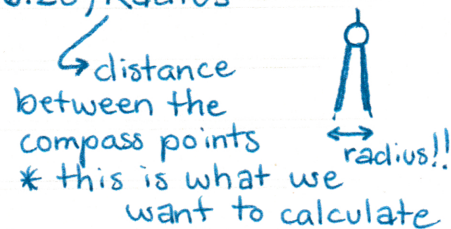 Radius
distance
between the
compass points
radius!!
* this is what we
want to calculate